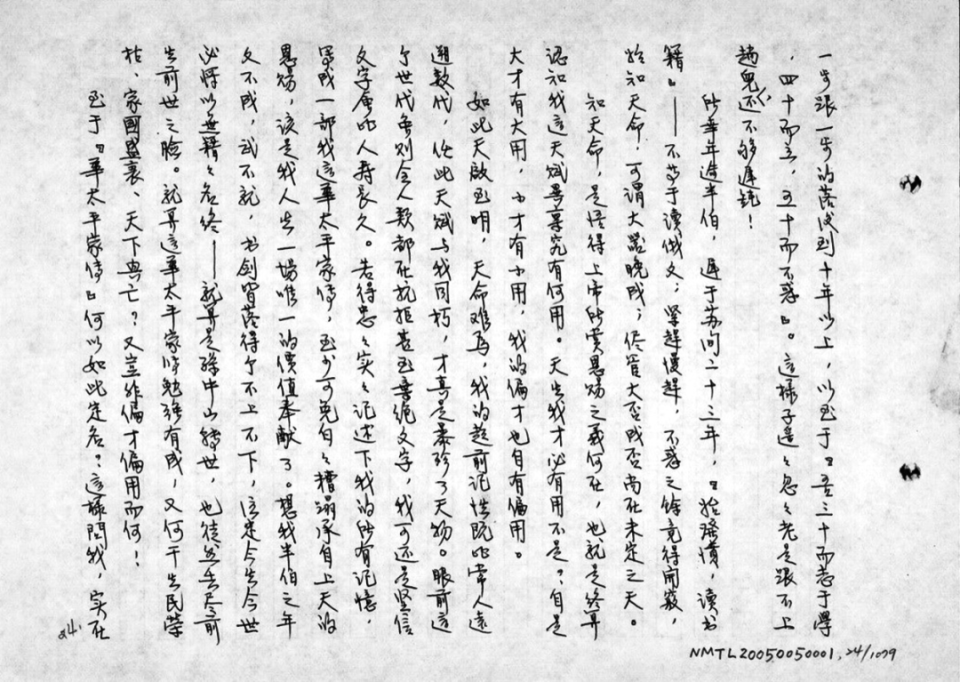 一步跟一步的落後到十年以上，以至于『吾三十而志于學
，四十而立，五十而不惑』。這樣子遙々忽々老是跟不上
趟兒，還不夠遲鈍！
所幸年逾半伯，遲于苏洵二十三年，『始發憤，讀書
籍』——不苦于讀俄文；緊趕慢趕，不惑之餘竟得開竅，
始知天命，可謂大器晚成；儘管大不成否尚在未定之天。
知天命，是悟得上帝所賞恩賜之義何在，也就是終算
認知我這天賦異稟究有何用。天生我才必有用不是？自是
大才有大用，小才有小用，我的偏才也自有偏用。
如此天啟至明，天命難為，我的超前記性既比常人遠
過數代，任此天賦与我同朽，才真是暴殄了天物。眼前這
个世代令人數都在抗拒甚至棄絕文字，我可還是堅信
文字會比人壽長久。若得忠々实々記述下我的所有記憶，
累成一部我這華太平家傳，至少可免白々糟蹋承自上天的
恩賜，該是我人生一場唯一的價值奉獻了。想我半伯之年
文不成，武不就，書劍皆落得个不上不下，注定今生今世
必將以無籍々名終——就算是孫中山轉世，也徒然丟盡前
生前世之臉。就算這華太平家傳勉強有成，又何干生民榮
枯、家國盛衰、天下興亡？又豈非偏才偏用而何！
至于『華太平家傳』何以如此定名？這樣問我，实在
24.
NMTL20050050001,24/1079